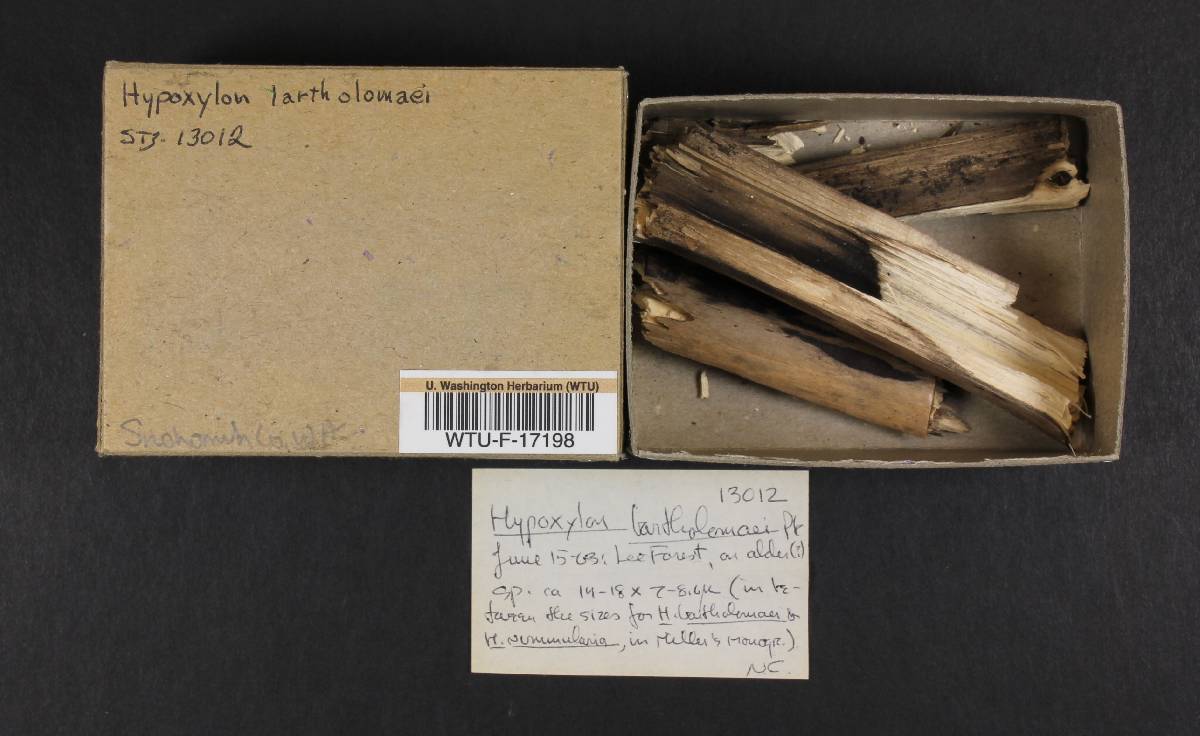 Hypoxylon bartholomaei
STZ. 13012
Snohomish Co, WA
U. Washington Herbarium (WTU)
WTU-F-17198
13012
Hypoxylon bartholomaei Pk
June 15-63: Lee Forest, on alder(?)
sp. ca 14-18 x 7-8.4µ (in be-
tween the sizes for H. bartholomaei &
H. nummularia, in Miller's Monogr.)
NC.